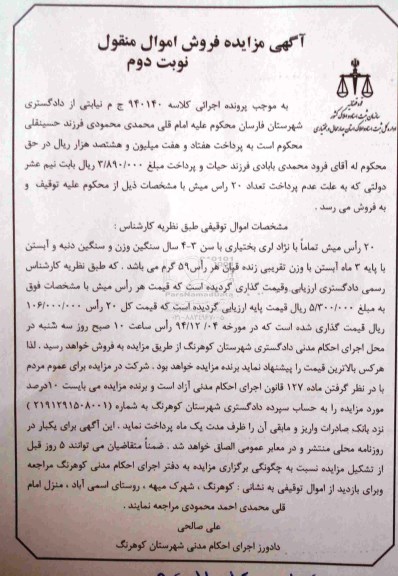 آگهی مزایده فروش اموال منقول
نوبت دوم
به موجب پرونده اجرائی کلاسه ۹۴۰۱۴۰ ج م نیابتی از دادگستری
شهرستان فارسان محکوم علیه امام قلی محمدی محمودی فرزند حسینقلی
محکوم است به پرداخت هفتاد و هفت میلیون و هشتصد هزار ریال در حق
محکوم له آقای فرود محمدی بابادی فرزند حیات و پرداخت مبلغ ۳/۸۹۰/۰۰۰ ریال بابت نیم عشر
دولتی که به علت عدم پرداخت تعداد ۲۰ راس میش با مشخصات ذیل از محکوم علیه توقیف و
به فروش می رسد .
مشخصات اموال توقیفی طبق نظریه کارشناس :
۲۰ رأس میش تماماً با نژاد لری بختیاری با سن ۳-۴ سال سنگین وزن و سنگین دنبه و آبستن
با پایه ۳ ماه آبستن با وزن تقریبی زنده قپان هر رأس ۵۹ گرم می باشد . که طبق نظریه کارشناس
رسمی دادگستری ارزیابی وقیمت گذاری گردیده است که قیمت هر رأس میش با مشخصات فوق
به مبلغ ۵/۳۰۰/۰۰۰ ریال قیمت پایه ارزیابی گردیده است که قیمت کل ۲۰ رأس ۱۰۶/۰۰۰/۰۰۰
ریال قیمت گذاری شده است که در مورخه ۰۴/ ۹۴/۱۲ رأس ساعت ۱۰ صبح روز سه شنبه در
محل اجرای احکام مدنی دادگستری شهرستان کوهرنگ از طریق مزایده به فروش خواهد رسید . لذا
هرکس بالاترین قیمت را پیشنهاد نماید برنده مزایده خواهد بود . شرکت در مزایده برای عموم مردم
با در نظر گرفتن ماده ۱۲۷ قانون اجرای احکام مدنی آزاد است و برنده مزایده می بایست ۱۰درصد
مورد مزایده را به حساب سپرده دادگستری شهرستان کوهرنگ به شماره (۲۱۹۱۲۹۱۵۰۸۰۰۱)
نزد بانک صادرات واریز و مابقی آن را ظرف مدت یک ماه پرداخت نماید . این آگهی برای یکبار در
روزنامه محلی منتشر و در معابر عمومی الصاق خواهد شد . ضمناً متقاضیان می توانند ۵ روز قبل
از تشکیل مزایده نسبت به چگونگی برگزاری مزایده به دفتر اجرای احکام مدنی کوهرنگ مراجعه
وبرای بازدید از اموال توقیفی به نشانی : کوهرنگ ، شهرک میهه ، روستای اسمی آباد ، منزل امام
قلی محمدی احمد محمودی مراجعه نمایند .
علی صالحی
دادورز اجرای احکام مدنی شهرستان کوهرنگ